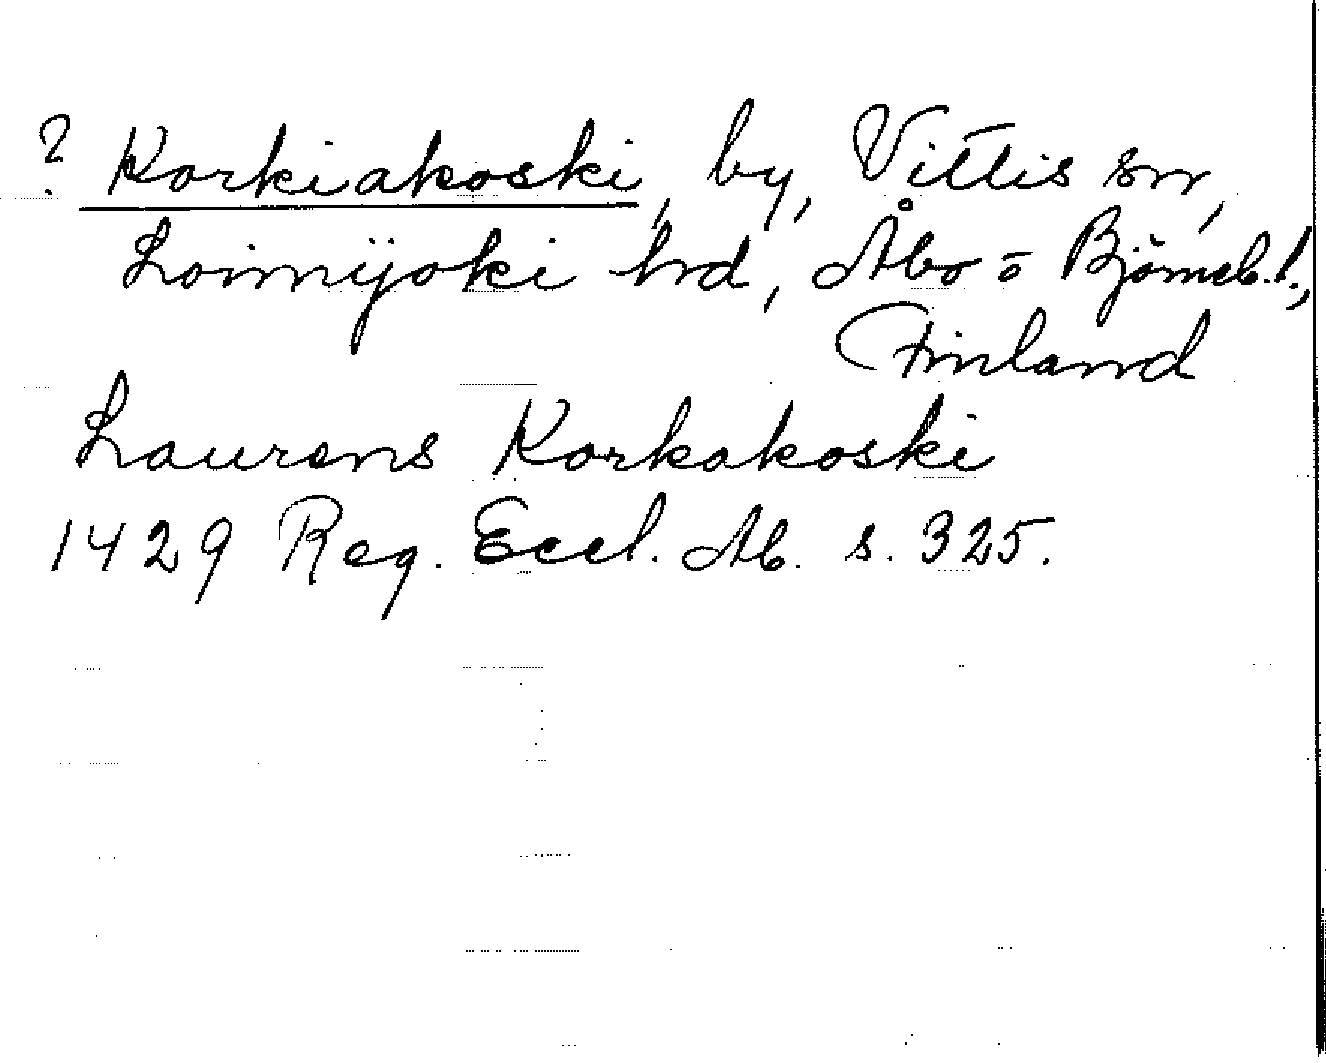 ? Korkiakoski, by, Vittis sn,
Loimijoki hrd, Åbo o Björneb.l.,
Finland
Laurens Korkakoski
1429 Reg. Eccl. Ab. s. 325.